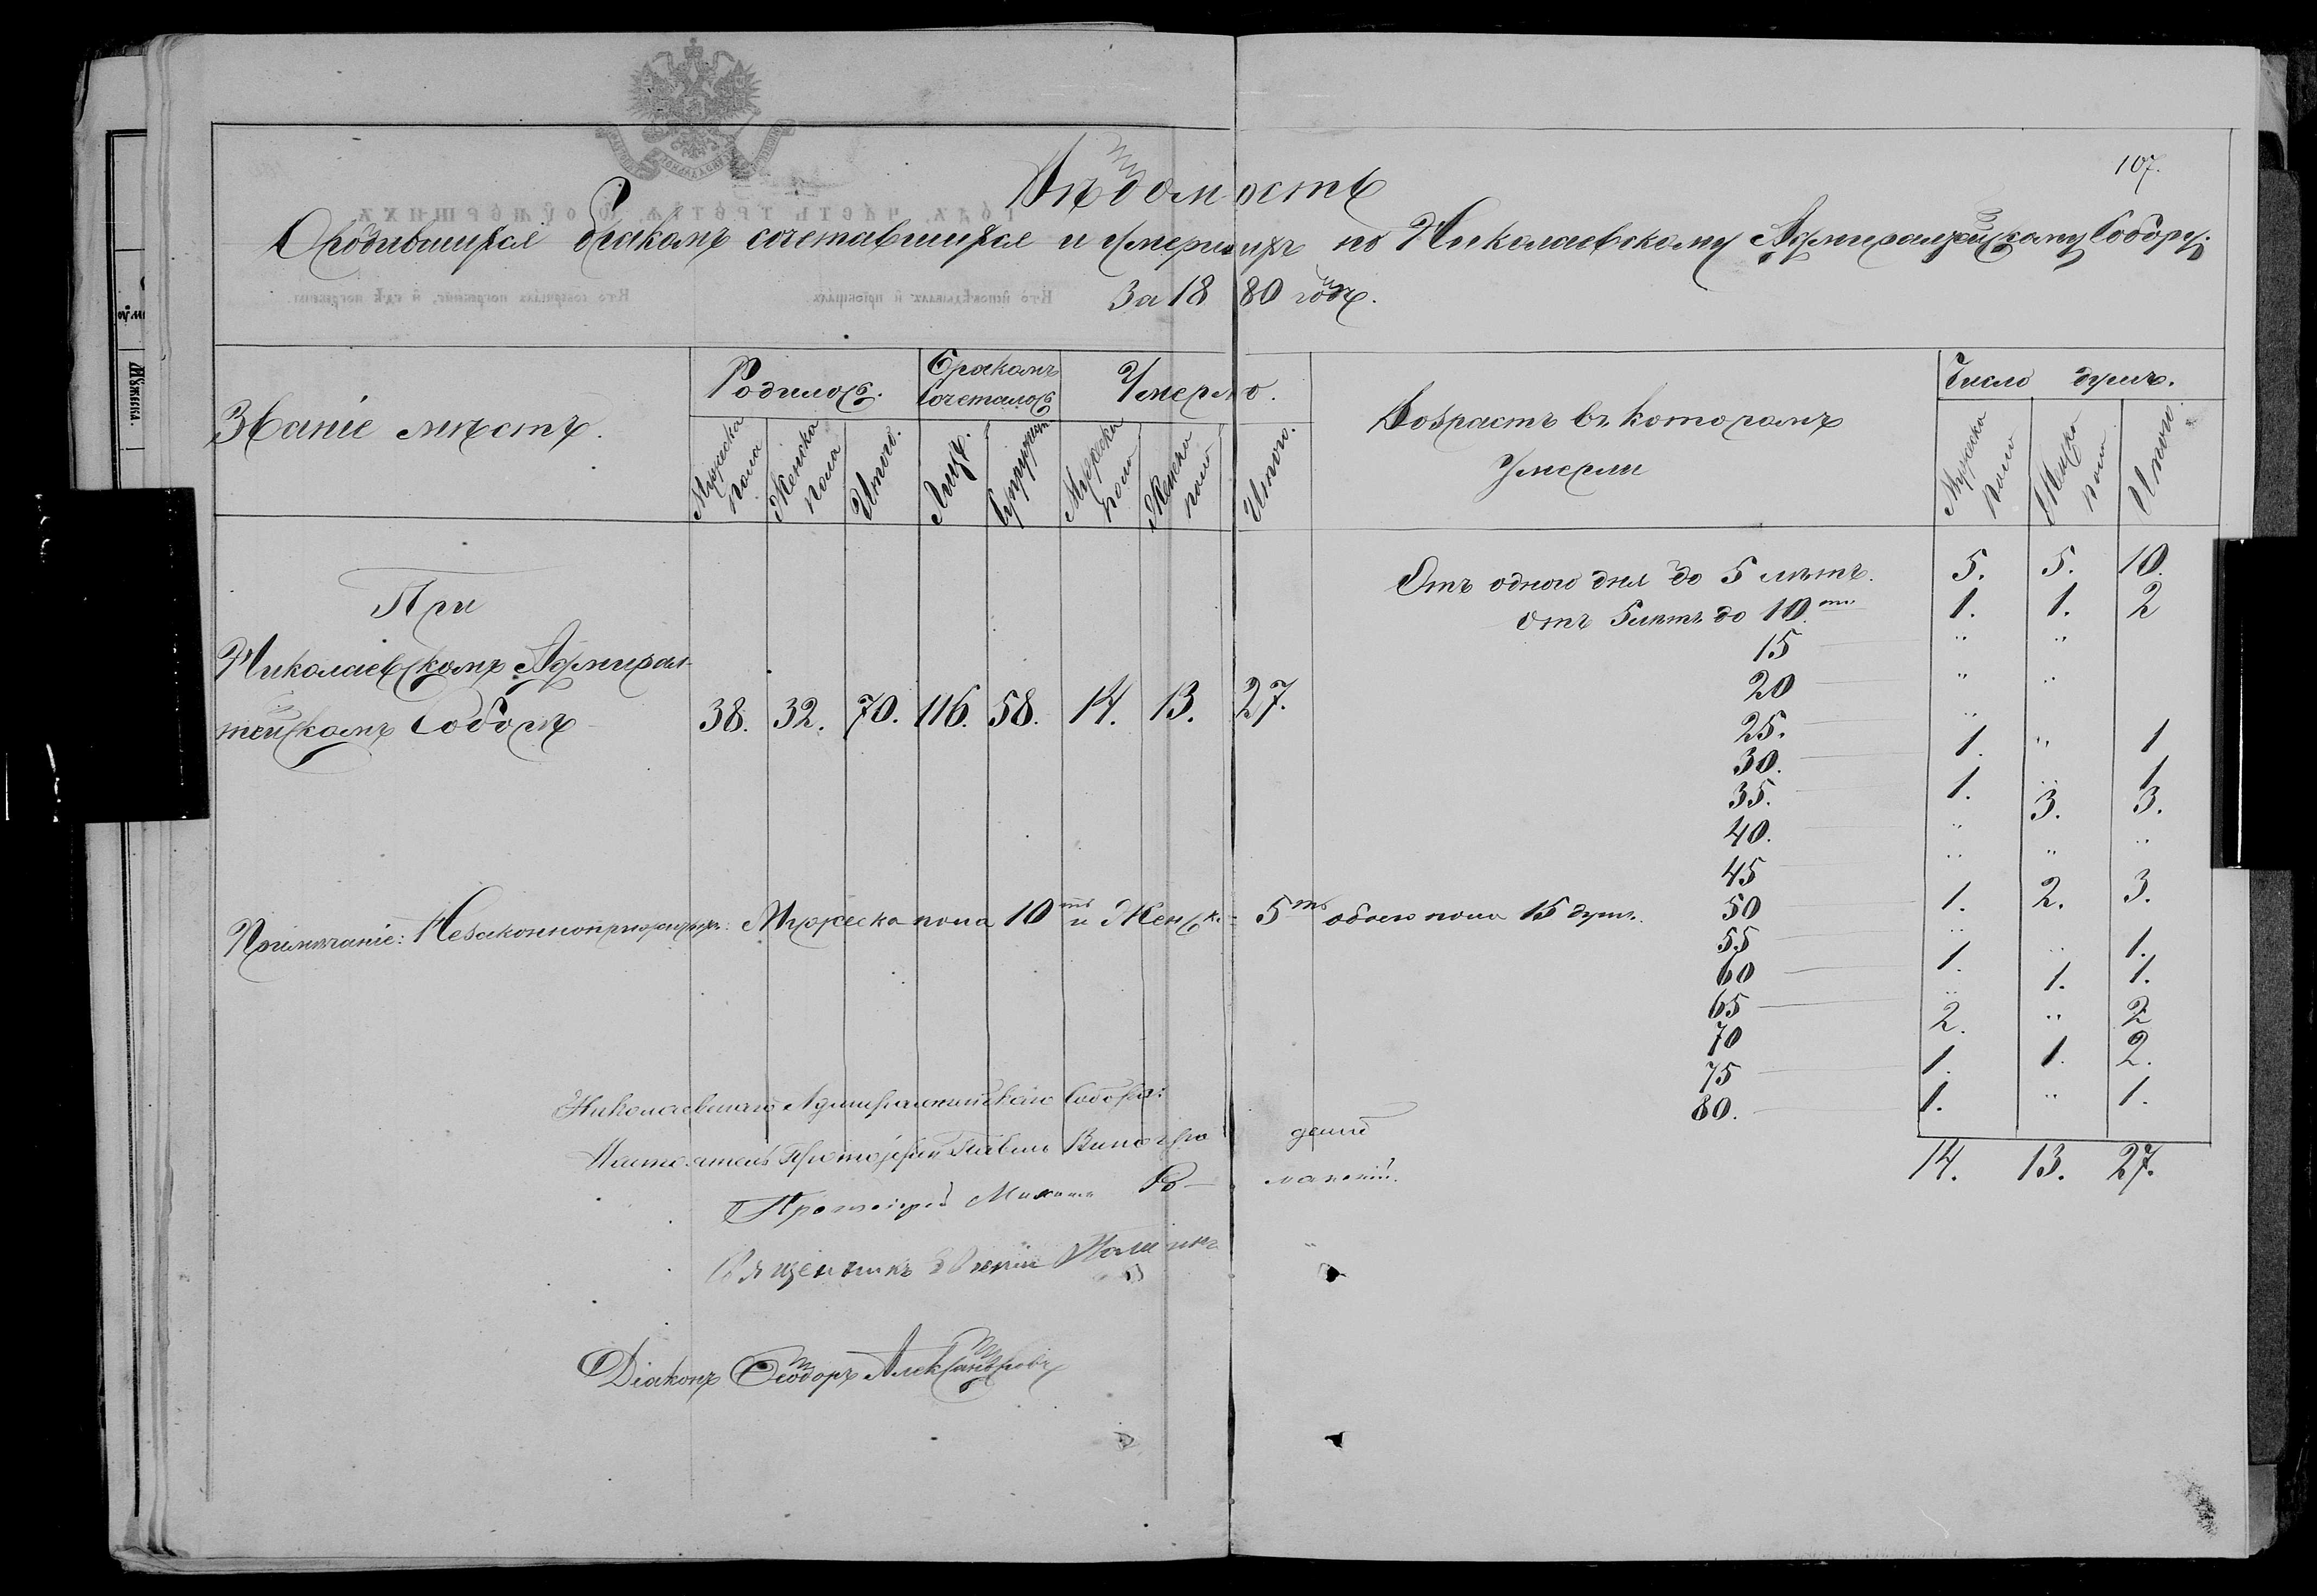 107.
Вѣдомость
О родившихся бракомъ сочетавшихся и умершихъ по Николаевскому Адмиралтейскому Собору.
За 1880 годъ.
Званіе мѣстъ.
Родилось.
Бракомъ сочеталось
Умерло.
Возрастъ въ которомъ умерли
Число душъ.
Мужеска пола
Женска пола
Итого.
Лицъ.
Супружествъ
Мужеска пола
Женска пола
Итого.
Мужеска пола
Женска пола
Итого
При
Николаевскомъ Адмирал-
тейскомъ Соборѣ
38. 32. 70. 116. 58. 14. 13. 27.
Отъ одного дня до 5 лѣтъ. 5. 5. 10.
отъ 5 лѣтъ до 10ти 1. 1. 2
15 " "
20 " "
25. "
30. 1. " 1
35. 1. " 1
40. " 3. 3.
45 " " "
50 1. 2. 3.
55 " "
60 1. 1.
65 " 1. 1.
70 2. " 2
75 1. 1. 2.
80. 1. " 1.
14. 13. 27.
Примѣчаніе: Незаконнорожденныхъ: Мужеска пола 10ть и Женск. 5ть обоего пола 15 душъ.
Николаевскаго Адмиралтейскаго Собора:
Настоятель Протоіерей Павелъ Виноградовъ
Протоіерей Михаилъ
Священникъ
Діаконъ Ѳеодоръ Александровъ